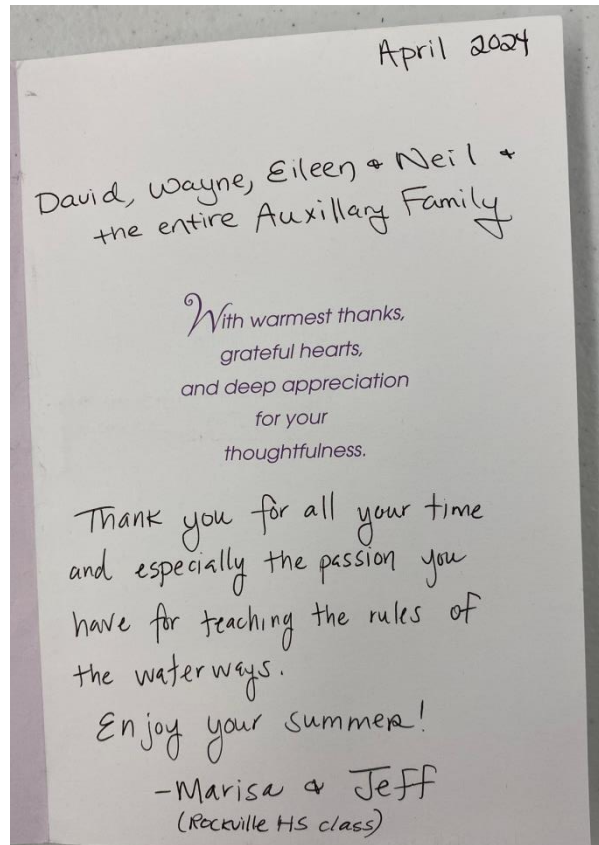 April 2024
David, Wayne, Eileen & Neil &
the entire Auxillary Family
With warmest thanks,
grateful hearts,
and deep appreciation
for your
thoughtfulness.
Thank you for all your time
and especially the passion you
have for teaching the rules of
the waterways.
Enjoy your summer!
-Marisa & Jeff
(Rockville HS class)